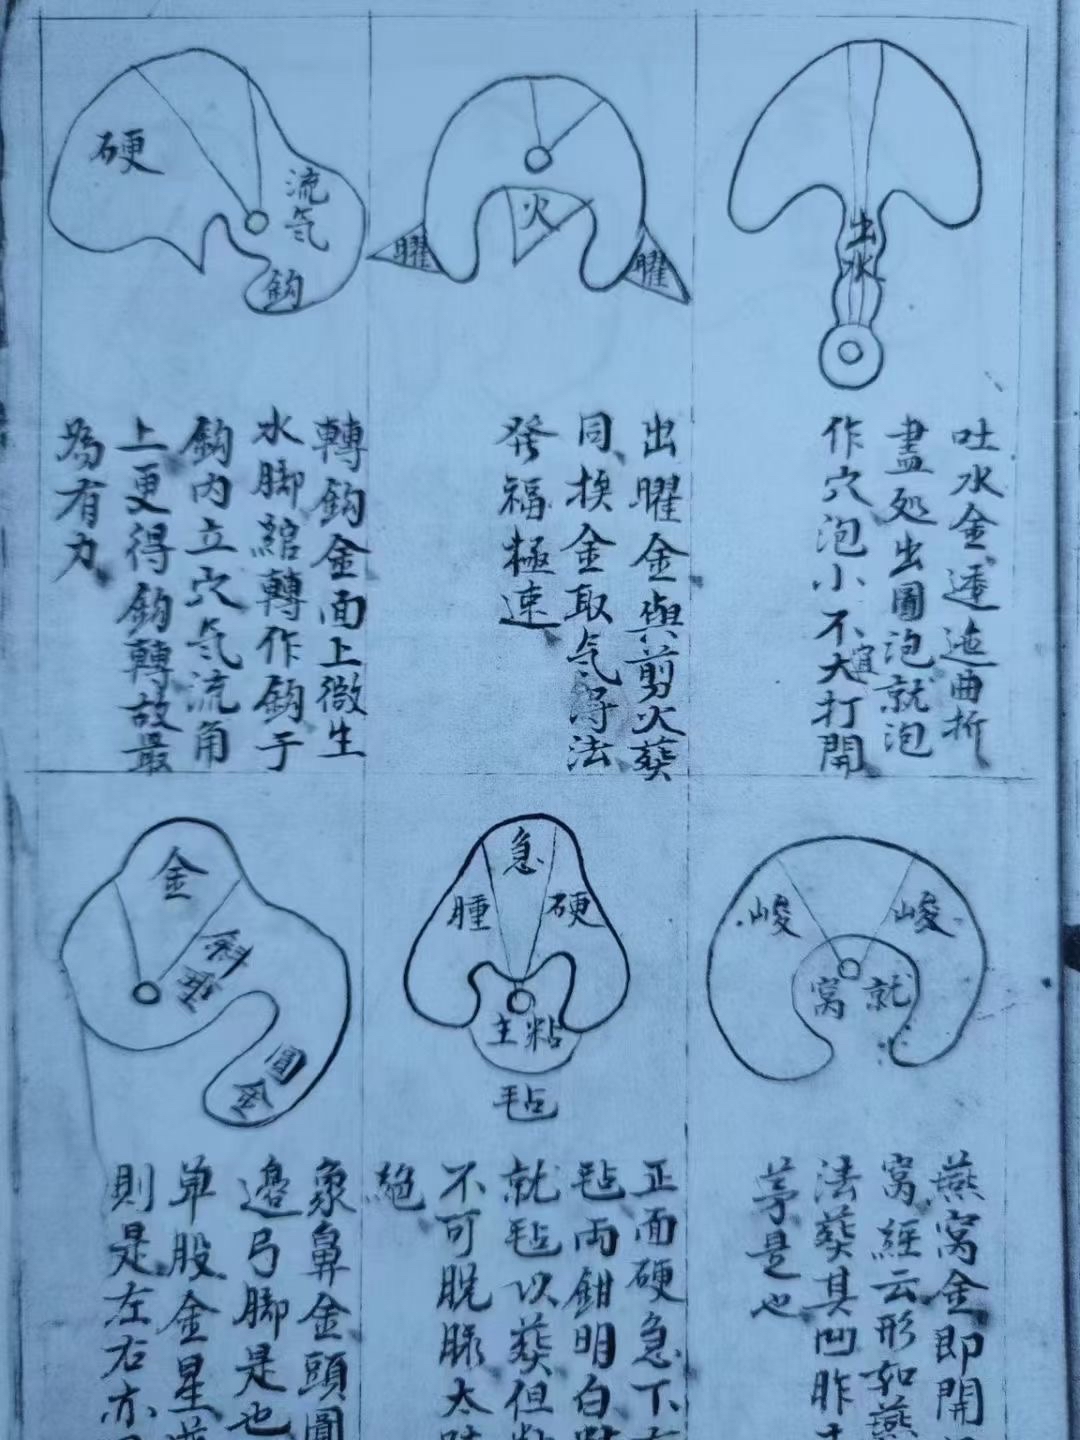 吐水金透迤曲折
盡処出圖泡就泡
作穴泡小不宜大打開
出水
出曜金與剪火葵
同挨金取气淂法
發福極速
曜
火
曜
轉鈎金面上微生
水脚綰轉作鈎于
鈎内立穴气流角
上更得鈎轉故最
為有力
硬
流气
鈎
燕窝金即開
窝經云形如燕
法葵其凹胙
茅是也
峻
峻
窝就
正面硬急下
毡両鉗明白
就毡以葵但粘
不可脱脉太
絕
急
腫
硬
主粘
毡
象鼻金頭圓
邊弓脚是也
单股金星
則是左右亦
金
圓
金